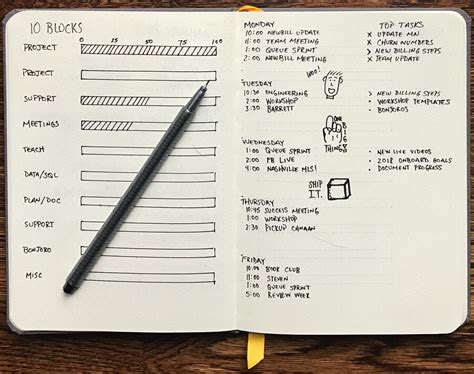 10 BLOCKS
0 25 50 75 100
PROJECT
PROJECT
SUPPORT
MEETINGS
TEACH
DATA/SQL
PLAN/DOC
SUPPORT
BONJORO
MISC
MONDAY
10:00 NEWBILL UPDATE
11:00 TEAM MEETING
1:00 QUEUE SPRINT
2:00 NEWBILL MEETING
TOP TASKS
X UPDATE MN
X CHURN NUMBERS
> NEW BILLING STEPS
X TEAM UPDATE
WOO!
TUESDAY
10:30 ENGINEERING
2:00 WORKSHOP
3:30 BARRETT
> NEW BILLING STEPS
• WORKSHOP TEMPLATES
• BONJOROS
BIG
THING!
WEDNESDAY
1:00 QUEUE SPRINT
2:00 PB LIVE
4:00 NASHVILLE MLS!
• NEW LIVE VIDEOS
• 2018 ONBOARD GOALS
• DOCUMENT PROGRESS
SHIP
IT.
THURSDAY
10:45 SUCCESS MEETING
1:00 WORKSHOP
2:30 PICKUP CANAAN
FRIDAY
10:00 BOOK CLUB
11:00 STEVEN
1:00 QUEUE SPRINT
5:00 REVIEW WEEK